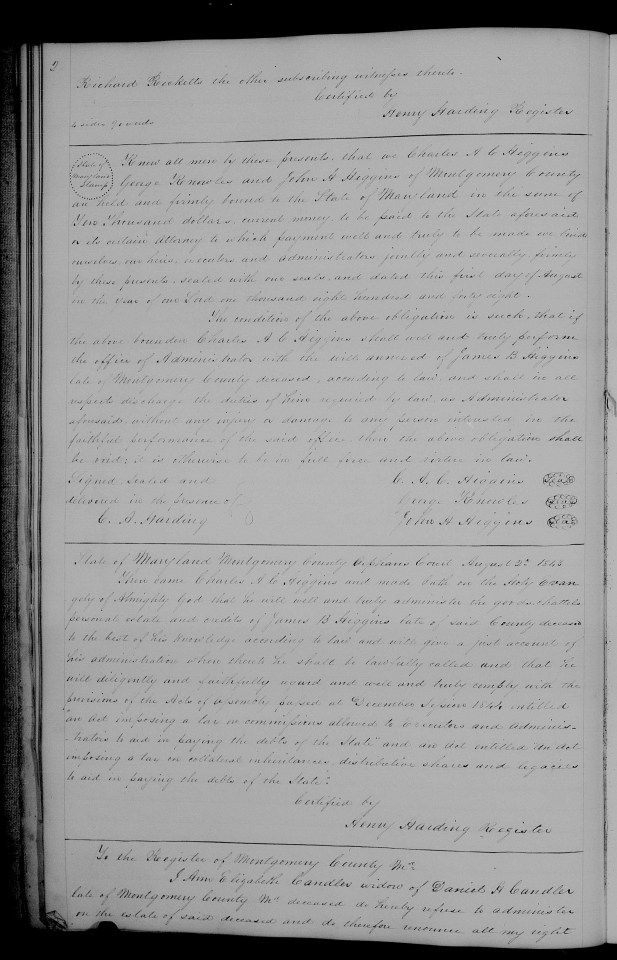 2
Richard Ricketts the other subscribing witness thereto.
Certified by
Henry Harding Register
State of
Maryland
Stamp
Know all men by these presents, that we Charles A C Higgins
George Knowles and John A Higgins of Montgomery County
are held and firmly bound to the State of Maryland in the sum of
Ten Thousand dollars, current money, to be paid to the State aforesaid
or its certain Attorney to which payment well and truly to be made we bind
ourselves, our heirs, executors and administrators jointly and severally, firmly
by these presents, sealed with our seals, and dated this first day of August
in the year of our Lord one thousand eight hundred and forty eight.
The condition of the above obligation is such, that if
the above bounden Charles A C Higgins shall well and truly perform
the office of Administrator with the will annexed of James B Higgins
late of Montgomery County deceased, according to law, and shall in all
respects discharge the duties of him required by law, as Administrator
aforesaid, without any injury or damage to any person interested in the
faithful performance of the said office then the above obligation shall
be void; it is otherwise to be in full force and virtue in law.
Signed sealed and
delivered in the presence of
C. A. Harding
C. A. C. Higgins Seal
George Knowles Seal
John A Higgins Seal
State of Maryland Montgomery County Orphans Court August 2d 1848
Then came Charles A C Higgins and made oath on the Holy Evan
gely of Almighty God that he will well and truly administer the goods, chattels
personal estate and credits of James B Higgins late of said County deceased
to the best of his knowledge according to law and will give a just account of
his administration when thereto he shall be lawfully called and that he
will diligently and faithfully regard and well and truly comply with the
provisions of the Acts of Assembly passed at December Session 1844 entitled
"an Act imposing a tax on commissions allowed to Executors and Adminis-
-trators to aid in paying the debts of the State" and an Act entitled "An Act
imposing a tax on collateral inheritances, distributive shares and legacies
to aid in paying the debts of the State."
Certified by
Henry Harding Register
To the Register of Montgomery County Md
I Ann Elizabeth Candler widow of Daniel H Candler
late of Montgomery County Md deceased do hereby refuse to administer
on the estate of said deceased and do therefore renounce all my right